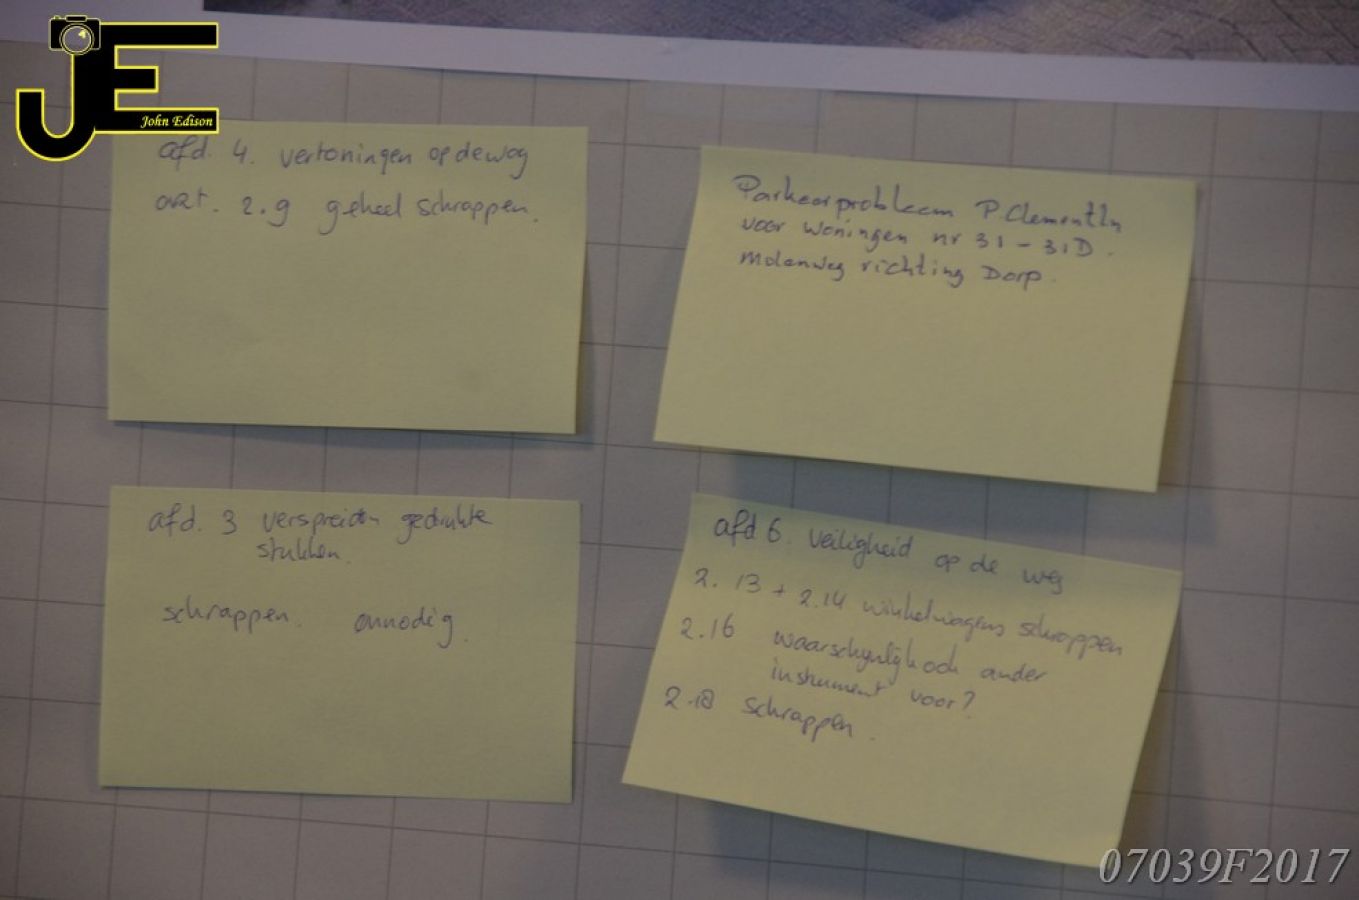 JE
John Edison
afd. 4. vertoningen op de weg
art. 2.9 geheel schrappen.
Parkeerprobleem P.Clementln
voor woningen nr 31 - 31D.
molenweg richting Dorp.
afd. 3 verspreiden gedrukte
stukken.
schrappen. onnodig.
afd 6. veiligheid op de weg
2.13 + 2.14 winkelwagens schrappen
2.16 waarschynlijk ook ander
instrument voor?
2.18 schrappen.
07039F2017